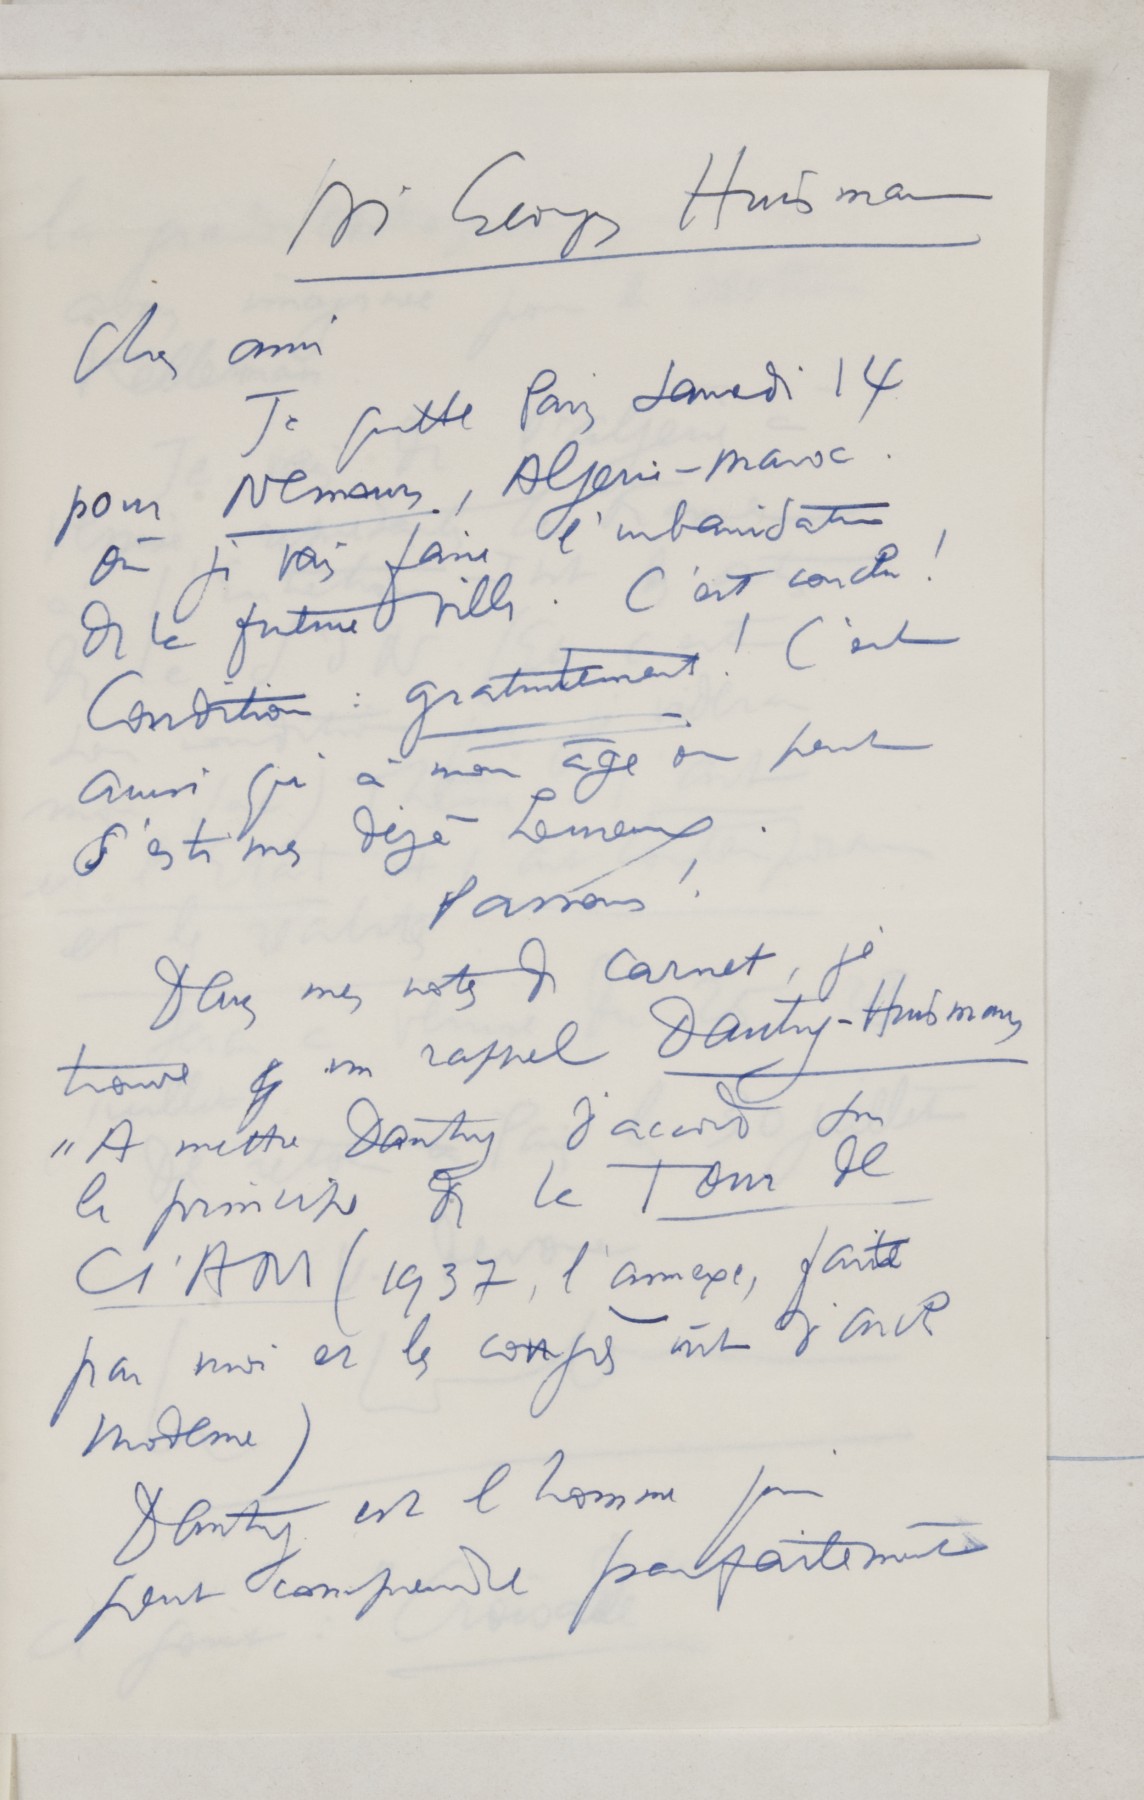 Mr Georges Huisman
Cher ami
Je quitte Paris samedi 14
pour Nemours, Algérie-Maroc.
où je vais faire l'urbanisation
de la future ville. C'est conclu!
Condition : gratuitement! C'est
ainsi qu'à mon âge on peut
s'estimer déjà heureux.
Passons!
Dans mes notes de carnet, je
trouve un rappel Dautry-Huisman
"A mettre Dautry d'accord sur
le principe de la Tour de
CIAM (1937, l'annexe, faite
par moi et les congrès int d'arch
moderne)
Dautry est l'homme qui
peut comprendre parfaitement